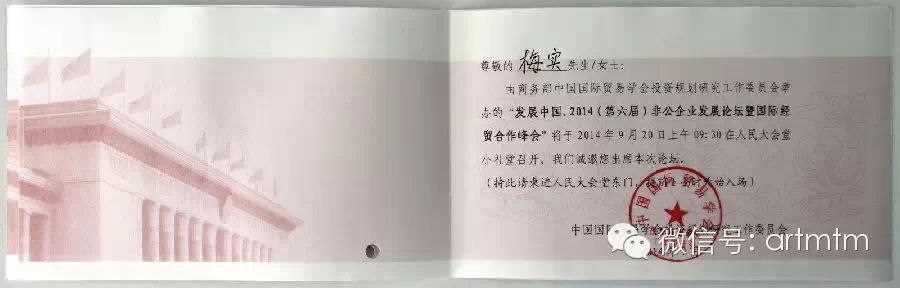 尊敬的 梅实 先生/女士:
由商务部中国国际贸易学会投资规划研究工作委员会举
办的“发展中国.2014(第六届)非公企业发展论坛暨国际经
贸合作峰会”将于2014年9月20日上午09:30在人民大会堂
小礼堂召开。我们诚邀您出席本次论坛。
(持此请柬进人民大会堂东门,提前1小时开始入场)
中国国际贸易学会
中国国际 学会 研究工作委员会
微信号: artmtm